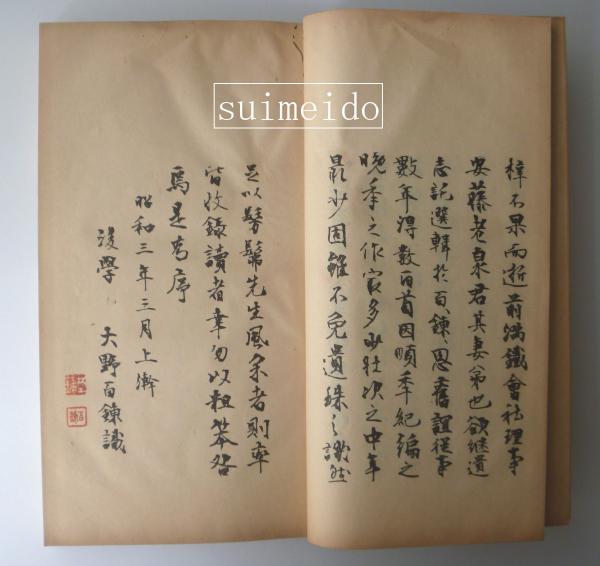 suimeido
梓不果而逝前満鐵會社理事
安藤老泉君其妻弟也欲継遺
志託選輯於百錬思舊誼從事
數年得數百首因順年紀編之
晩季之作最多少壮次之中年
最少固雖不免遺珠之譏然
足以髣髴先生風采者則率
皆收錄讀者幸勿以粗笨咎
焉是為序
昭和三年三月上澣
後學 大野百錬識